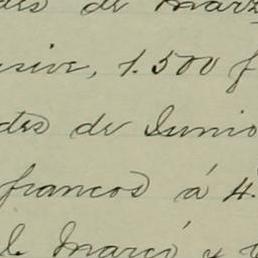 des de Marz
usive, 1.500 f
des de Junio
francos á 4.
de Março y